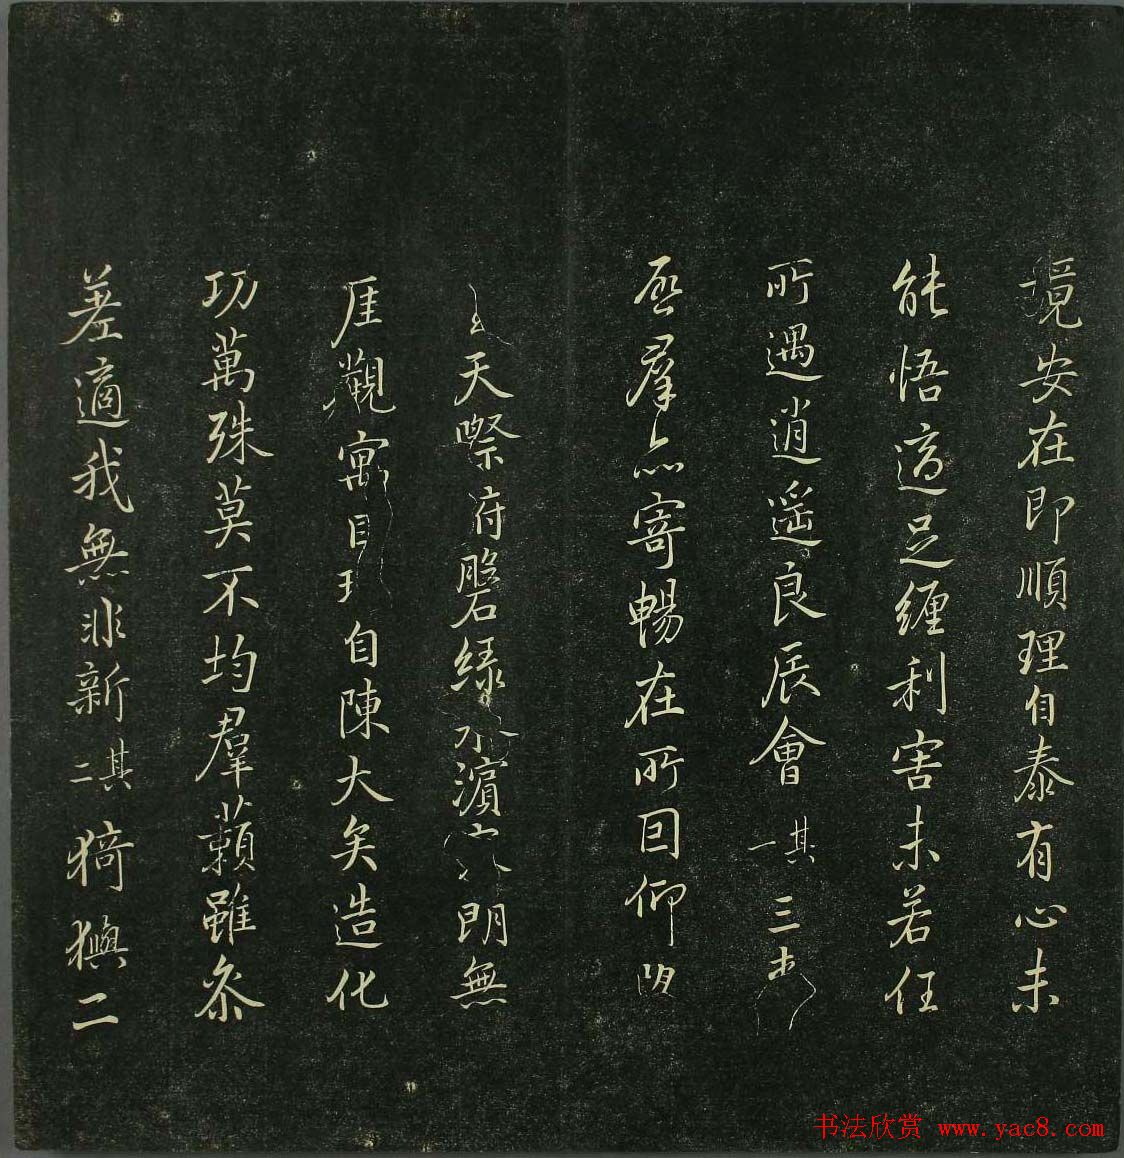 境安在即順理自泰有心未
能悟適足纏利害未若任
所遇逍遙良辰會其一三
羣品寄暢在所囙仰
天際府磐綠水濱朗無
厓觀寓目自陳大矣造化
功萬殊莫不均羣籟雖叅
差適我無非新其二猗二
书法欣赏 www.yac8.com